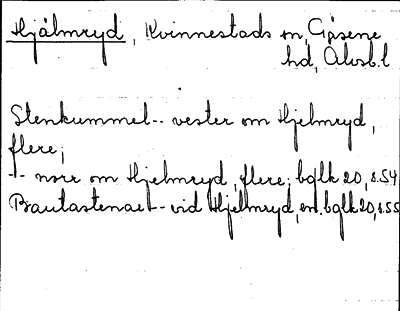 Hjälmryd, Kvinnestads sn, Gäsene
hd, Älvsb.l
Stenkummel -- vester om Hjelmryd,
flere;
-"- norr om Hjelmryd, flere; bglk 20, s.54
Bautastenar -- vid Hjelmryd, en. bglk 20, s.55